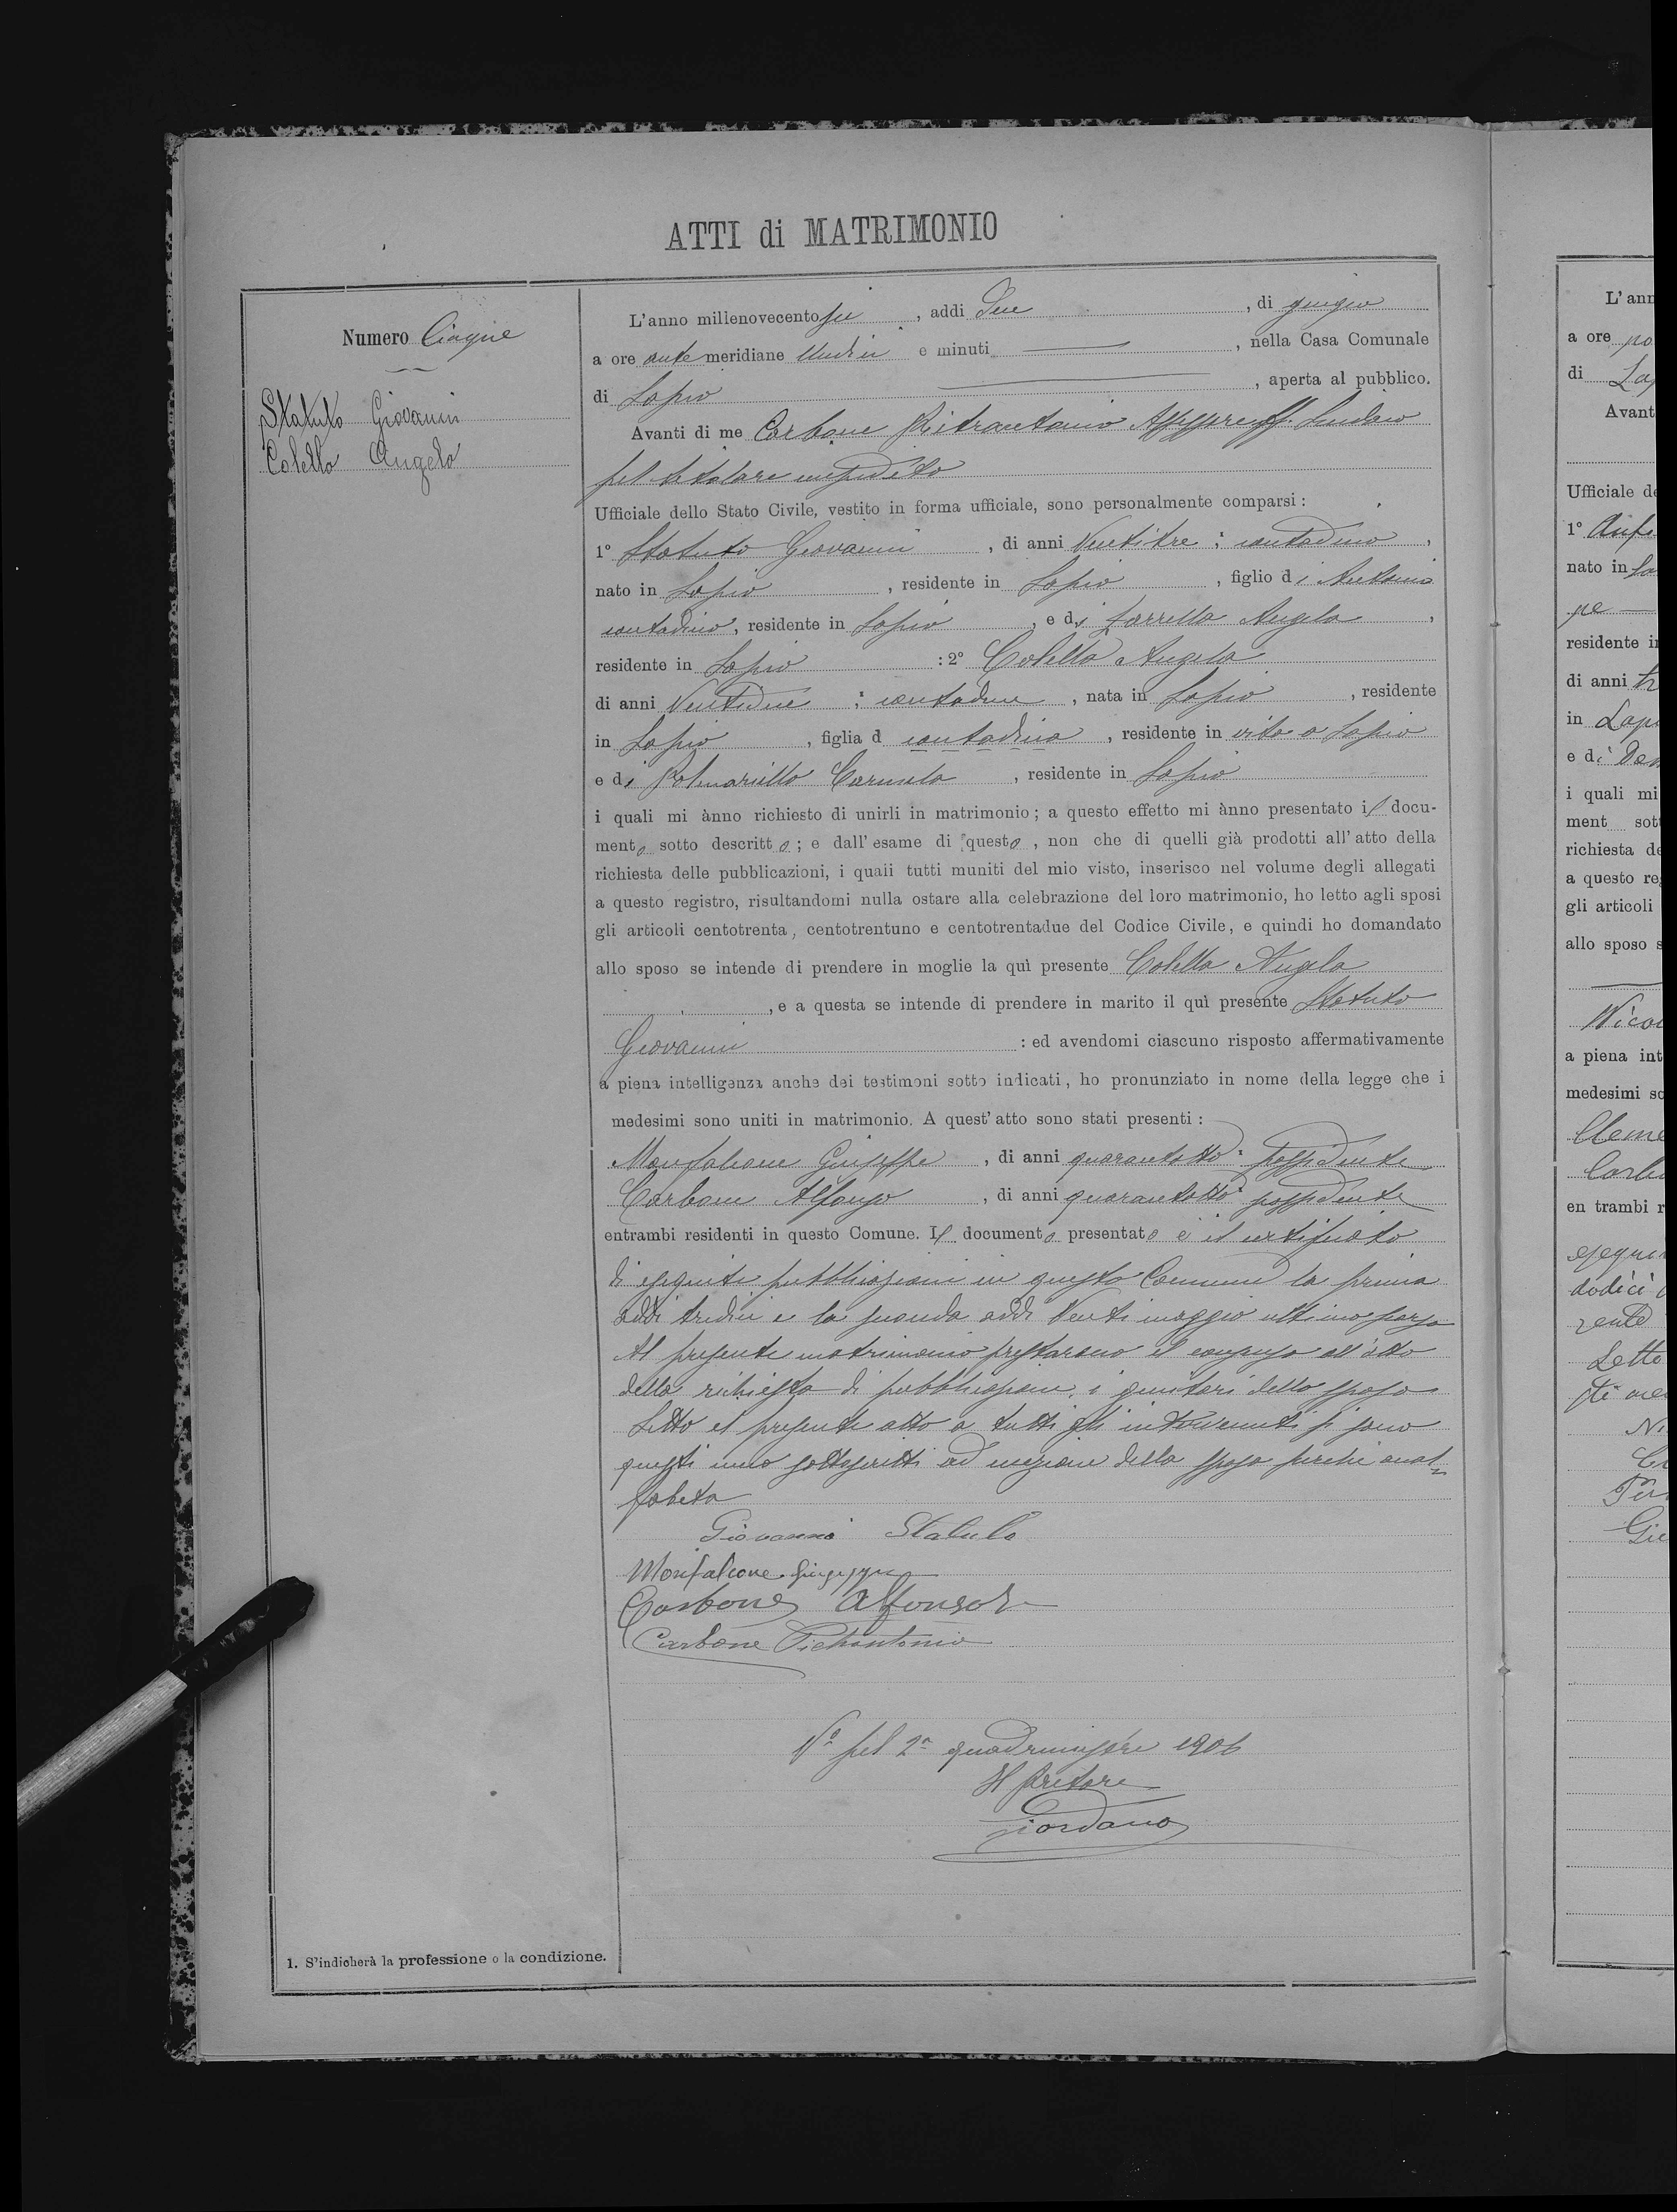 ATTI di MATRIMONIO
Numero Cinque
Statuto Giovanni
Colella Angela
L'anno millenovecento sei, addì due, di giugno
a ore antemeridiane undici e minuti —, nella Casa Comunale
di Lapio —, aperta al pubblico.
Avanti di me Carbone Pietrantonio Assessore ff. Sindaco
pel titolare impedito
Ufficiale dello Stato Civile, vestito in forma ufficiale, sono personalmente comparsi:
1° Statuto Giovanni, di anni Ventitre; contadino,
nato in Lapio, residente in Lapio, figlio di Antonio
contadino, residente in Lapio, e di Zarrella Angela,
residente in Lapio: 2° Colella Angela
di anni Ventidue; contadina, nata in Lapio, residente
in Lapio, figlia d contadino, residente in vita a Lapio
e di Carmela, residente in Lapio
i quali mi ànno richiesto di unirli in matrimonio; a questo effetto mi ànno presentato il docu-
mento sotto descritto; e dall'esame di questo, non che di quelli già prodotti all'atto della
richiesta delle pubblicazioni, i quali tutti muniti del mio visto, inserisco nel volume degli allegati
a questo registro, risultandomi nulla ostare alla celebrazione del loro matrimonio, ho letto agli sposi
gli articoli centotrenta, centotrentuno e centotrentadue del Codice Civile, e quindi ho domandato
allo sposo se intende di prendere in moglie la quì presente Colella Angela
, e a questa se intende di prendere in marito il quì presente Statuto
Giovanni: ed avendomi ciascuno risposto affermativamente
a piena intelligenza anche dei testimoni sotto indicati, ho pronunziato in nome della legge che i
medesimi sono uniti in matrimonio. A quest'atto sono stati presenti:
Monfalcone Giuseppe, di anni quarantotto: possidente
Carbone Alfonso, di anni quarantotto: possidente
entrambi residenti in questo Comune. Il documento presentato è il certificato
di eseguite pubblicazioni in questo Comune la prima
addì tredici e la seconda addì Venti maggio ultimo scorso
Al presente matrimonio prestarono il consenso all'atto
della richiesta di pubblicazione i genitori dello sposo
Letto il presente atto a tutti gli intervenuti si sono
questi meco sottoscritti ad eccezione della sposa perchè anal=
fabeta
Giovanni Statuto
Monfalcone Giuseppe
Carbone Alfonso
Carbone Pietrantonio
V° pel 2° quadrimestre 1906
Il Pretore
Giordano
1. S'indicherà la professione o la condizione.
L'ann
a ore po
di Lap
Avant
Ufficiale de
1°
nato in La
pe —
residente in
di anni tr
in Lapi
e di
i quali mi
ment sott
richiesta de
a questo reg
gli articoli
allo sposo s
Nico
a piena int
medesimi so
Cleme
Carb
en trambi r
esegui
dodici
Letto
Ni